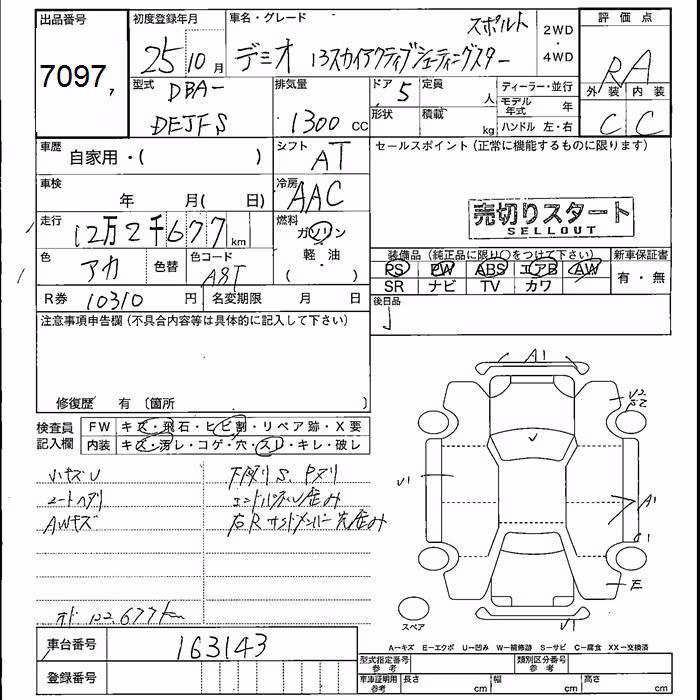 出品番号
7097
初度登録年月
25 10 月
車名・グレード
デミオ 13スカイアクティブシューティングスター
スポルト
2WD
・
4WD
評価点
RA
外装 内装
C C
型式
DBA-
DEJFS
排気量
1300 cc
ドア 5
形状
定員 人
積載 kg
ディーラー・並行
モデル年式 年
ハンドル 左・右
車歴
自家用・( )
シフト
AT
セールスポイント (正常に機能するものに限ります)
売切りスタート
SELLOUT
車検
年 月( 日)
冷房
AAC
走行
12万2千677 km
燃料
ガソリン
軽・油
( )
色
アカ
色替
色コード
A8T
装備品 (純正品に限り○をつけて下さい)
PS PW ABS エアB AW
SR ナビ TV カワ
新車保証書
有・無
R券 10310 円
名変期限 月 日
後日品
注意事項申告欄 (不具合内容等は具体的に記入して下さい)
修復歴 有 〔箇所 〕
検査員記入欄
FW キズ・飛石・ヒビ割・リペア跡・X要
内装 キズ・汚レ・コゲ・穴・スレ・キレ・破レ
小キズU
シートヘタリ
AWキズ
下廻りS、Pヌリ
エンドパネル歪み
右Rサイドメンバー先歪み
オド 122.677km
A1
V2
S2
V
U1
A1
C1
E
V1
スペア
A−キズ E−エクボ U−凹み W−補修跡 S−サビ C−腐食 XX−交換済
車台番号 163143
登録番号
型式指定番号 参考
類別区分番号 参考
車庫証明用 参考
長さ cm
幅 cm
高さ cm